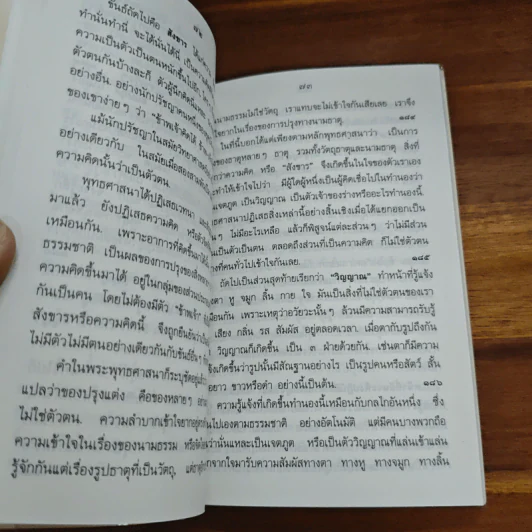 ๗๒
ขันธ์ถัดไปคือ สังขาร
ทำนั่นทำนี่ จะได้นั่นได้นี่
ความเป็นตัวเป็นตนหนักขึ้นไปอีก
ตัวตนกันบ้างละก็
อย่างอื่น อย่างนักปรัชญาคน
ของเขาง่ายๆ ว่า "ข้าพเจ้าคิดได้
แม้นักปรัชญาในสมัยวิทยาศาสตร์
อย่างเดียวกับ ในสมัยเมื่อสองสาม
ความคิดนั้นว่าเป็นตัวตน.
พุทธศาสนาได้ปฏิเสธเวทนา
มาแล้ว ยังปฏิเสธความคิด
เหมือนกัน. เพราะอาการที่คิดขึ้นมาได้
ธรรมชาติ เป็นผลของการปรุงของสิ่ง
ความคิดขึ้นมาได้ อยู่ในกลุ่มของส่วน
กันเป็นคน โดยไม่ต้องมีตัว "ข้าพเจ้า"
สังขารหรือความคิดนี้ จึงถูกยืนยันว่า
ไม่มีตัวไม่มีตนอย่างเดียวกันกับขันธ์อื่น ๆ
คำในพระพุทธศาสนาก็ระบุชัดอยู่แล้ว
แปลว่าของปรุงแต่ง คือของหลายๆ อย่าง
ไม่ใช่ตัวตน. ความลำบากเข้าใจยากอยู่
ความเข้าใจในเรื่องของนามธรรม หรือ
รู้จักกันแต่เรื่องรูปธาตุที่เป็นวัตถุ, แต่
๗๓
นามธรรมไม่ใช่วัตถุ เราแทบจะไม่เข้าใจกันเสียเลย. เราจึง
ยากในเรื่องของการปรุงทางนามธาตุ.
๑๘๔
ในที่นี้บอกได้แต่เพียงตามหลักพุทธศาสนาว่า เป็นการ
ของธาตุหลายๆ ธาตุ รวมทั้งวัตถุธาตุและนามธาตุ สิ่งที่
ว่าความคิด หรือ "สังขาร" จึงเกิดขึ้นในใจของตัวเราเอง
ทำให้เข้าใจไปว่า มีผู้ใดผู้หนึ่งเป็นผู้คิดเชื่อไปในทำนองว่า
เจตภูต เป็นวิญญาณ เป็นตัวเจ้าของร่างหรืออะไรทำนองนี้.
ศาสนาปฏิเสธสิ่งเหล่านี้อย่างสิ้นเชิงเมื่อได้แยกออกเป็น
ไม่มีอะไรเหลือ แล้วก็พิสูจน์แต่ละส่วนๆ ว่าไม่มีส่วน
เป็นตัวเป็นตน ตลอดถึงส่วนที่เป็นความคิด ก็ไม่ใช่ตัวตน
ที่คนทั่วไปเข้าใจกันเลย.
๑๘๕
ถัดไปเป็นส่วนสุดท้ายเรียกว่า "วิญญาณ" ทำหน้าที่รู้แจ้ง
ตา หู จมูก ลิ้น กาย ใจ มันเป็นสิ่งที่ไม่ใช่ตัวตนของเรา
เหมือนกัน เพราะเหตุว่าอวัยวะนั้นๆ ล้วนมีความสามารถรับรู้
เสียง กลิ่น รส สัมผัส อยู่ตลอดเวลา. เมื่อตากับรูปถึงกัน
วิญญาณก็เกิดขึ้น เป็น ๓ ฝ่ายด้วยกัน. เช่นตาก็มีความ
เกิดขึ้นว่ารูปนั้นมีสัณฐานอย่างไร เป็นรูปคนหรือสัตว์ สั้น
ยาว ขาวหรือดำ อย่างนี้เป็นต้น.
๑๘๖
ความรู้แจ้งที่เกิดขึ้นทำนองนี้เหมือนกับกลไกอันหนึ่ง ซึ่ง
ไปเองตามธรรมชาติ อย่างอัตโนมัติ แต่มีคนบางพวกถือ
ว่านั่นแหละเป็นเจตภูต หรือเป็นตัววิญญาณที่แล่นเข้าแล่น
จากใจมารับความสัมผัสทางตา ทางหู ทางจมูก ทางลิ้น